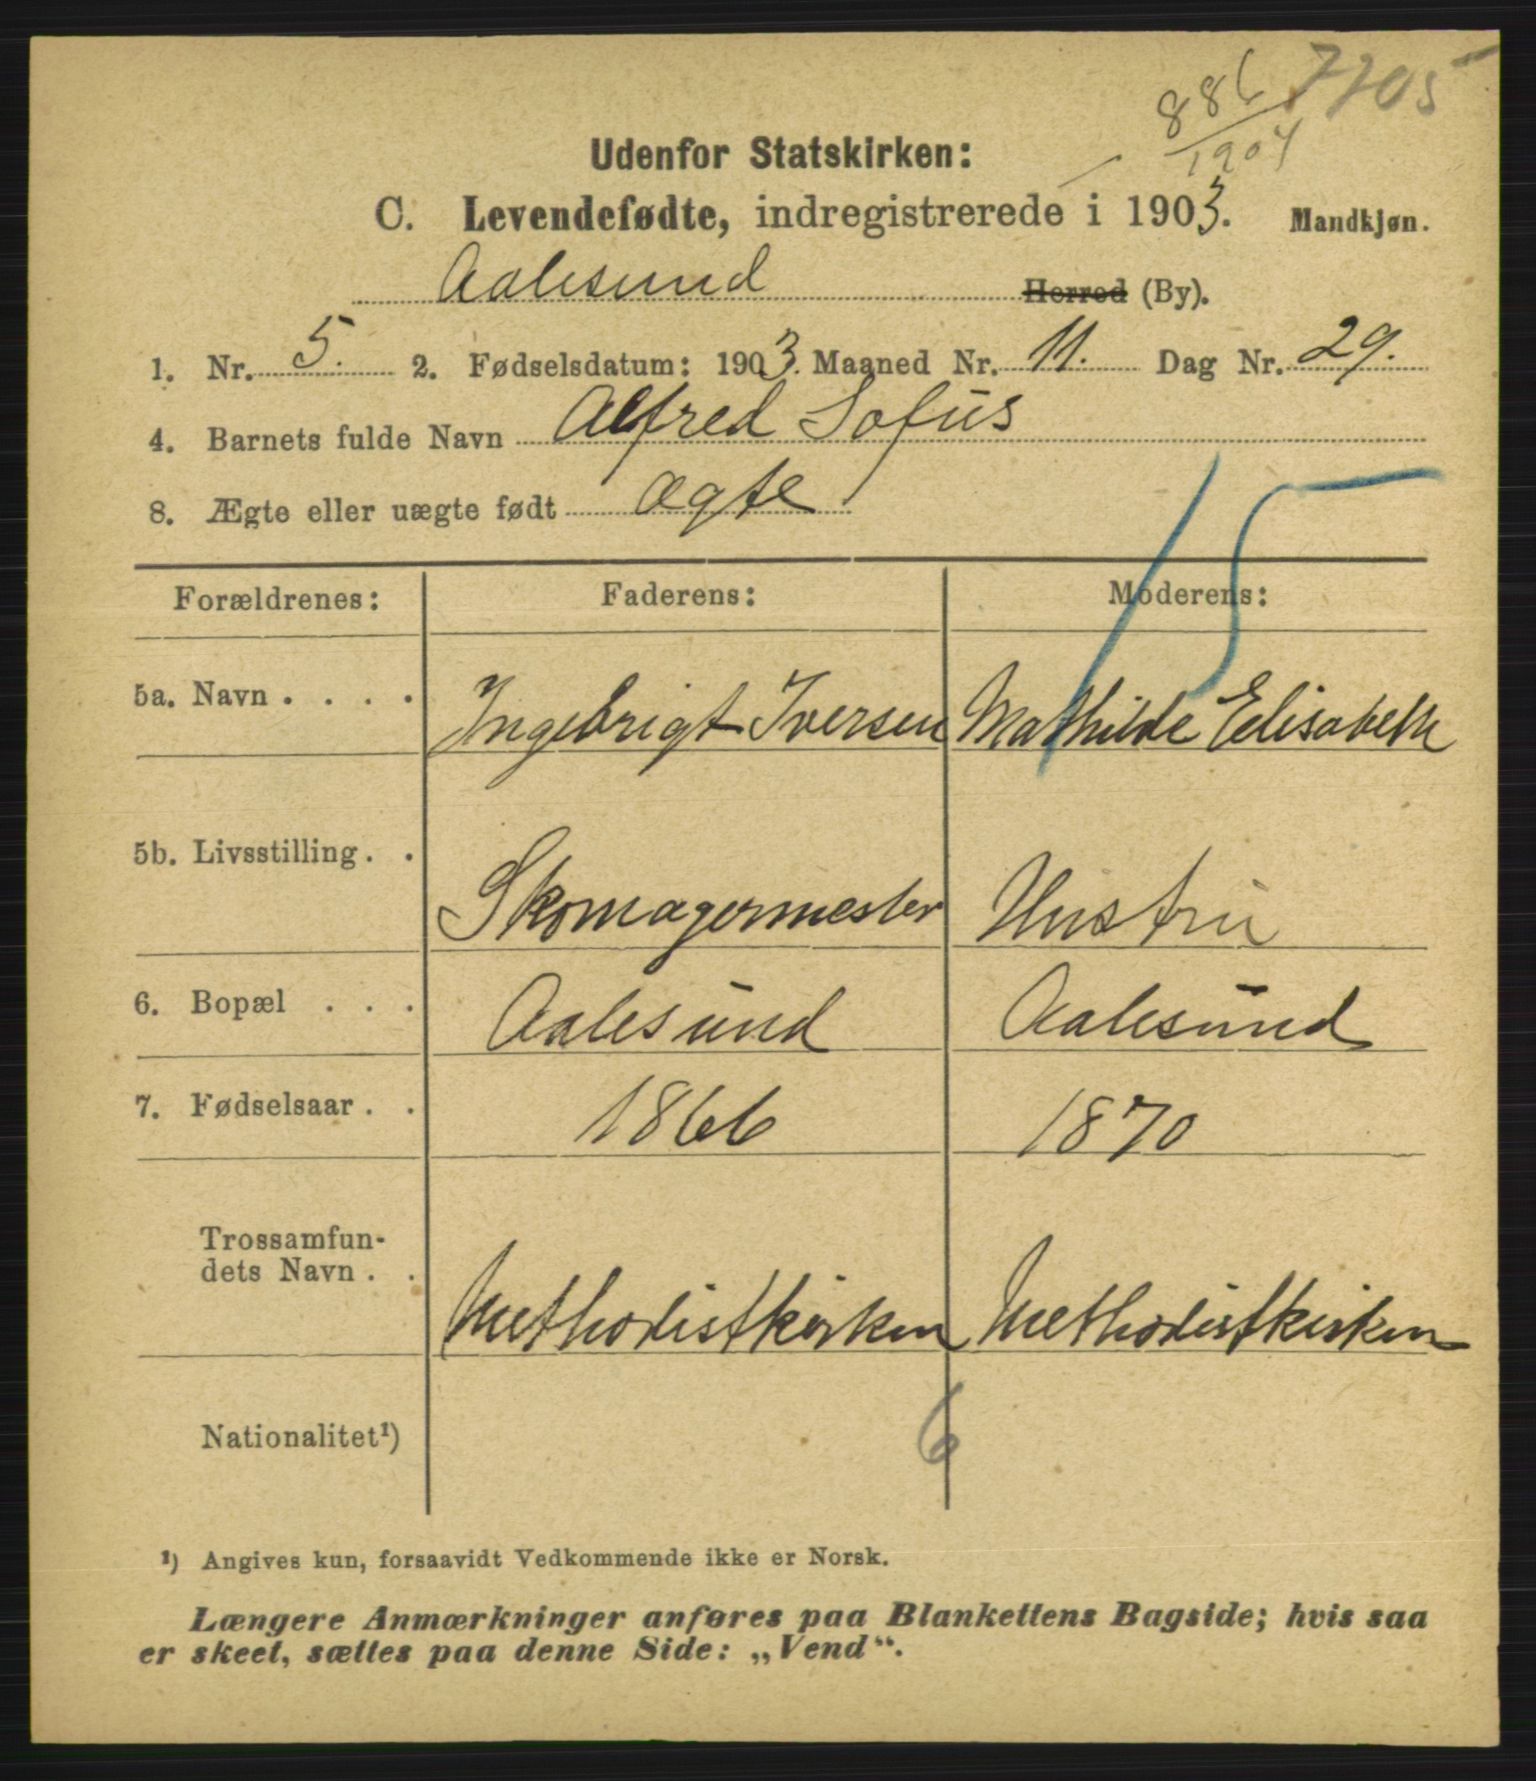 886 7705
1904
Udenfor Statskirken:
C. Levendefødte, indregistrerede i 1903. Mandkjøn.
Aalesund Herred (By).
1. Nr. 5. 2. Fødselsdatum: 1903. Maaned Nr. 11. Dag Nr. 29.
4. Barnets fulde Navn Alfred Sofus
8. Ægte eller uægte født ægte
15
Forældrenes: Faderens: Moderens:
5a. Navn . . . . Ingebrigt Iversen Mathilde Elisabeth
5b. Livsstilling . . Skomagermester Hustru
6. Bopæl . . . Aalesund Aalesund
7. Fødselsaar . . 1866 1870
Trossamfun-
dets Navn . . Methodistkirken Methodistkirken
Nationalitet¹) 6
¹) Angives kun, forsaavidt Vedkommende ikke er Norsk.
Længere Anmærkninger anføres paa Blankettens Bagside; hvis saa
er skeet, sættes paa denne Side: „Vend“.